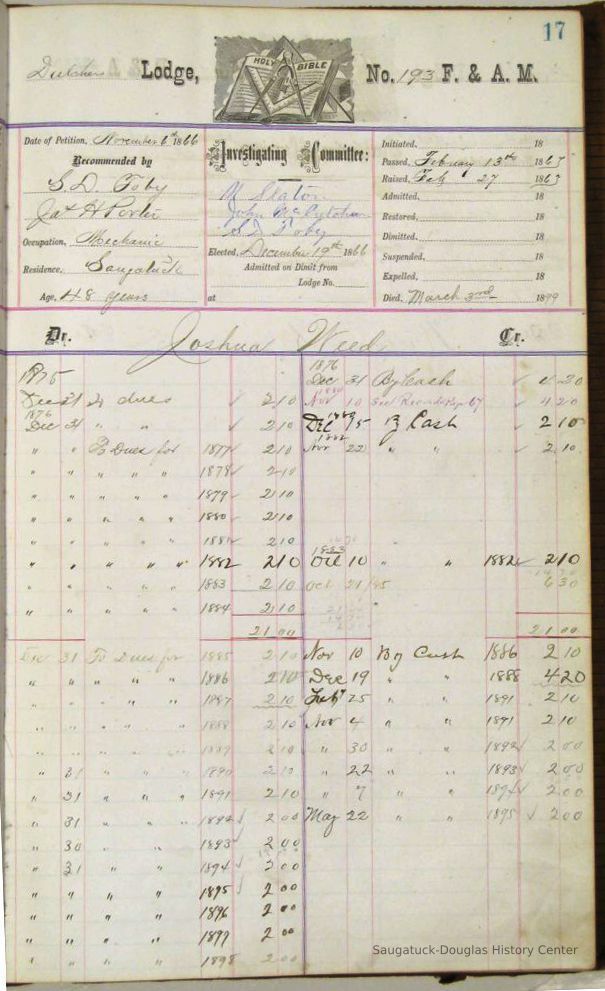 17
Dutcher Lodge, No. 193 F. & A. M.
HOLY BIBLE
Date of Petition, November 6th 1866
Recommended by
S. D. Toby
Jas H Porter
Occupation, Mechanic
Residence, Saugatuck
Age, 48 years
Investigating Committee:
M Slaton
S D Toby
Elected, December 19th 1866
Admitted on Dimit from
Lodge No.
at
Initiated, 18
Passed, February 13th 1867
Raised, Feb 27 1867
Admitted, 18
Restored, 18
Dimitted, 18
Suspended, 18
Expelled, 18
Died, March 3rd 1899
Dr. Joshua Weed Cr.
1875
1876
Dec 31 By Cash
Dec 31 To dues 2 10
Nov 10 See Records Page 67 4 20
1876
Dec 31 " " 2 10
Dec 15 By Cash 2 10
" " To Dues for 1877 2 10
Nov 22 " " 2 10
" " " " " 1878 2 10
" " " " " 1879 2 10
" " " " " 1880 2 10
" " " " " 1881 2 10
1883
" " " " " 1882 2 10 Oct 10 " " 1882 2 10
" " " " " 1883 2 10 Oct 21/85 6 30
" " " " " 1884 2 10
21 00 21 00
Dec 31 To Dues for 1885 2 10 Nov 10 By Cash 1886 2 10
" " " " " 1886 2 10 Dec 19 " " 1888 4 20
" " " " " 1887 2 10 Feby 25 " " 1891 2 10
" " " " " 1888 2 10 Nov 4 " " 1891 2 10
" " " " " 1889 2 10 " 30 " " 1892 2 00
" 31 " " " 1890 2 10 " 22 " " 1893 2 00
" 31 " " " 1891 2 10 " 7 " " 1894 2 00
" 31 " " " 1892 2 00 May 22 " " 1895 2 00
" 30 " " " 1893 2 00
" 31 " " " 1894 2 00
" " " " 1895 2 00
" " " " 1896 2 00
" " " " 1897 2 00
" " " " 1898 2 00
Saugatuck-Douglas History Center